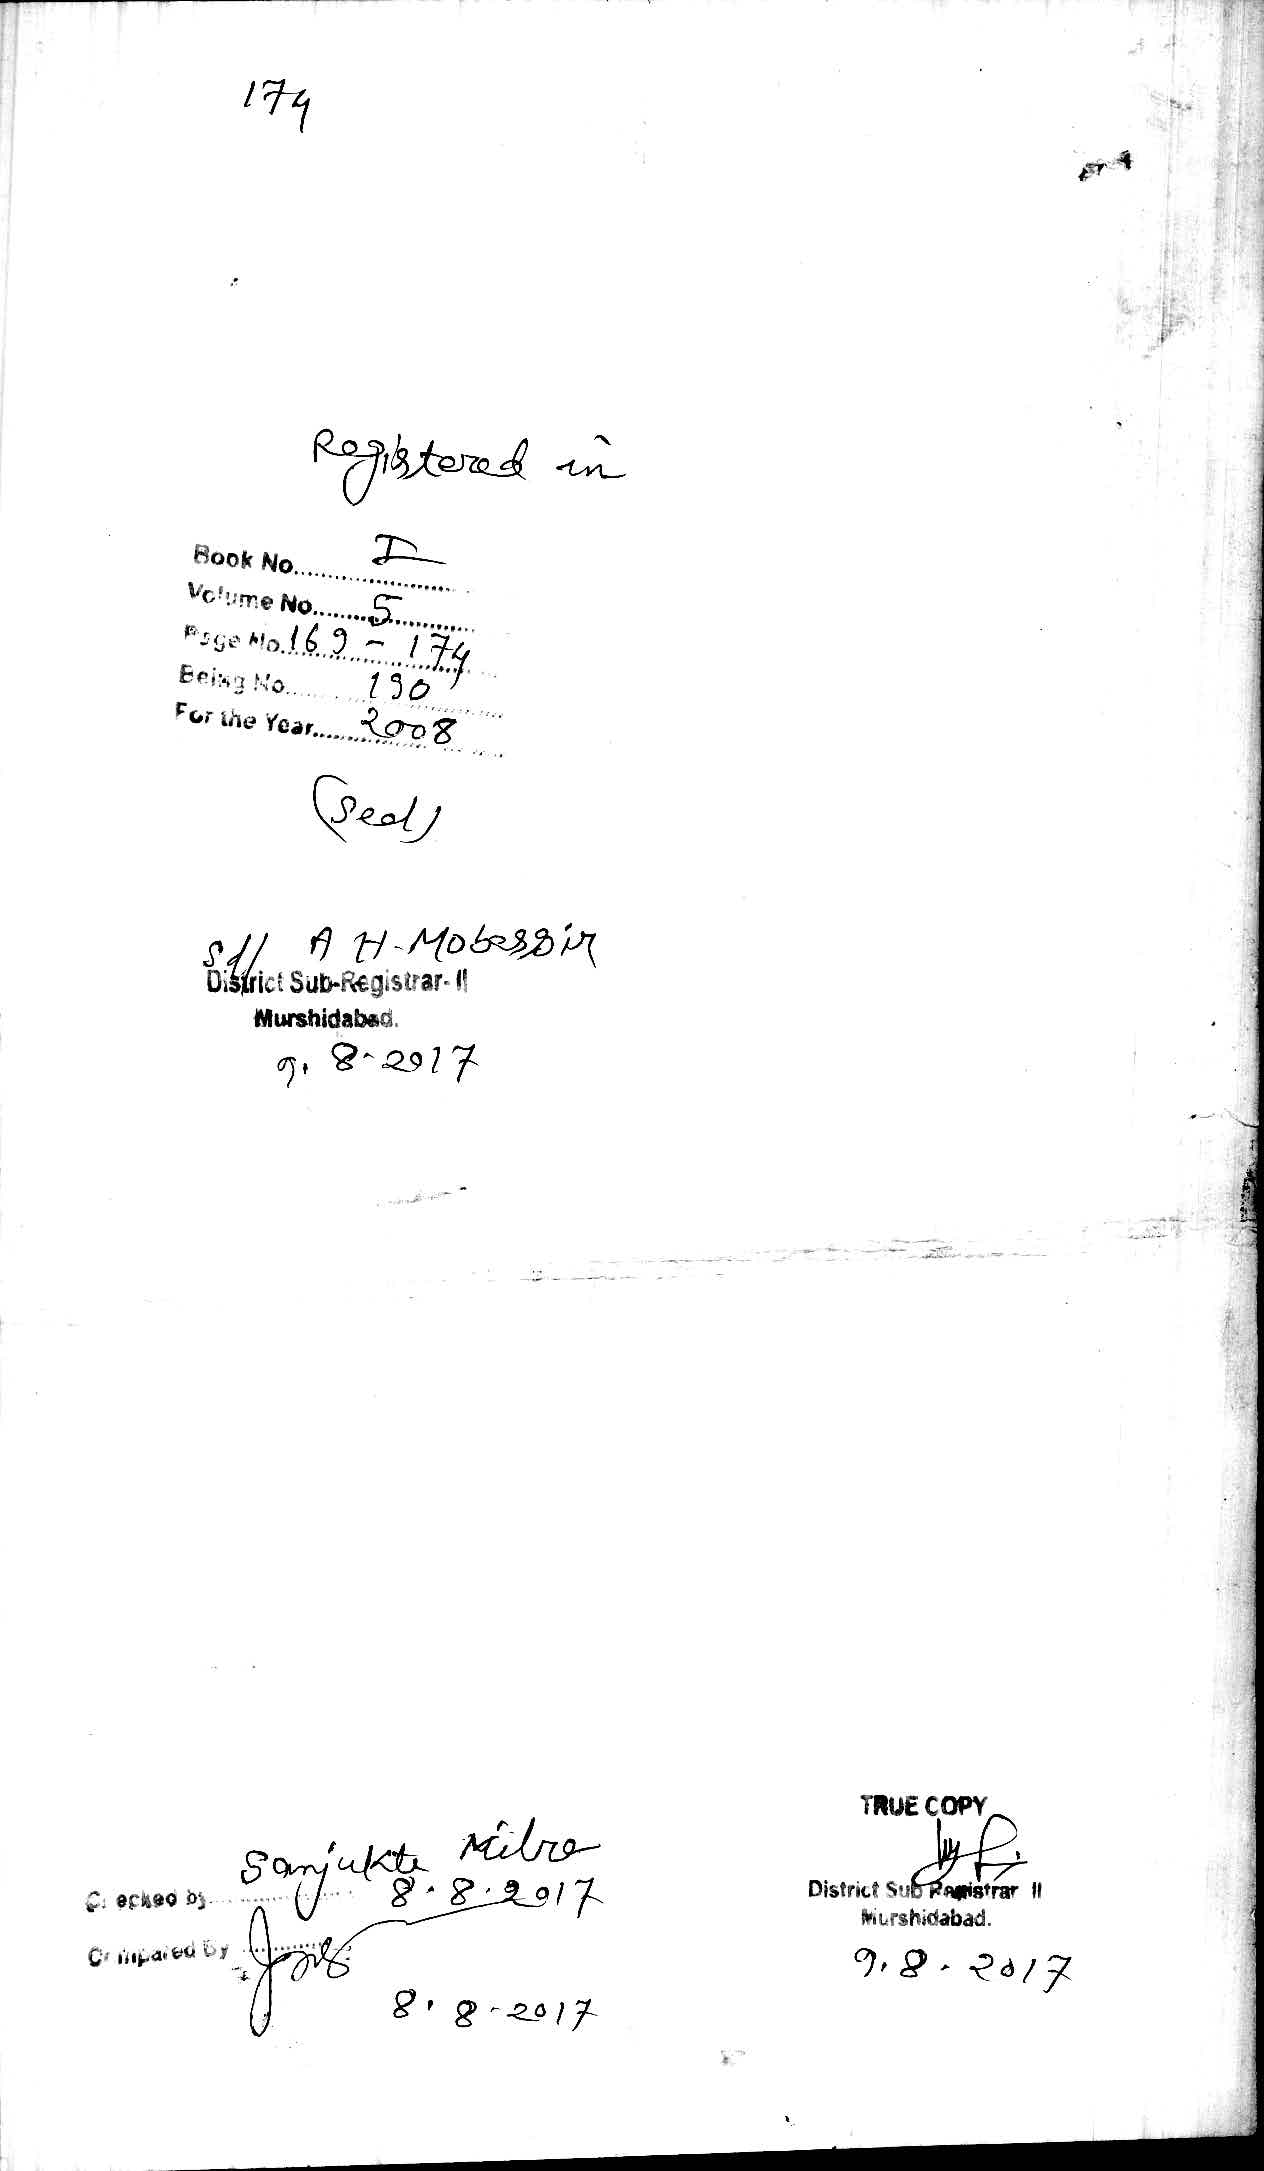 174
Registered in
Book No. I
Volume No. 5
Page No. 169 - 174
Being No. 190
For the Year 2008
(Seal)
Sd/ A H. Mobassir
District Sub-Registrar-II
Murshidabad.
9.8.2017
TRUE COPY
Sanjukta Mitra
Checked by 8.8.2017
Compared By
8.8.2017
District Sub Registrar II
Murshidabad.
9.8.2017